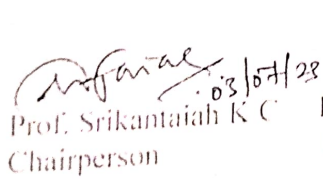 03/07/23
Prof. Srikantaiah K C
Chairperson